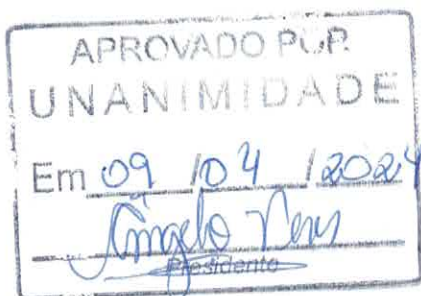 APROVADO POR
UNANIMIDADE
Em 09 /04 /2024
Presidente